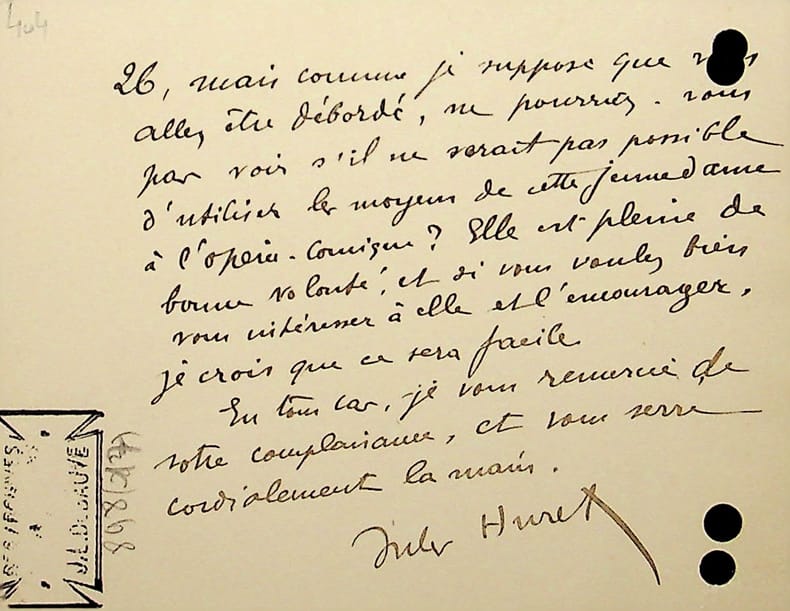 404
26, mais comme je suppose que vous
allez être débordé, ne pourriez-vous
par voir s'il ne serait pas possible
d'utiliser les moyens de cette jeune dame
à l'opéra-comique? Elle est pleine de
bonne volonté, et si vous voulez bien
vous intéresser à elle et l'encourager,
je crois que ce sera facile.
En tous cas, je vous remercie de
votre complaisance, et vous serre
cordialement la main.
Jules Huret
J.L. DEBAUVE